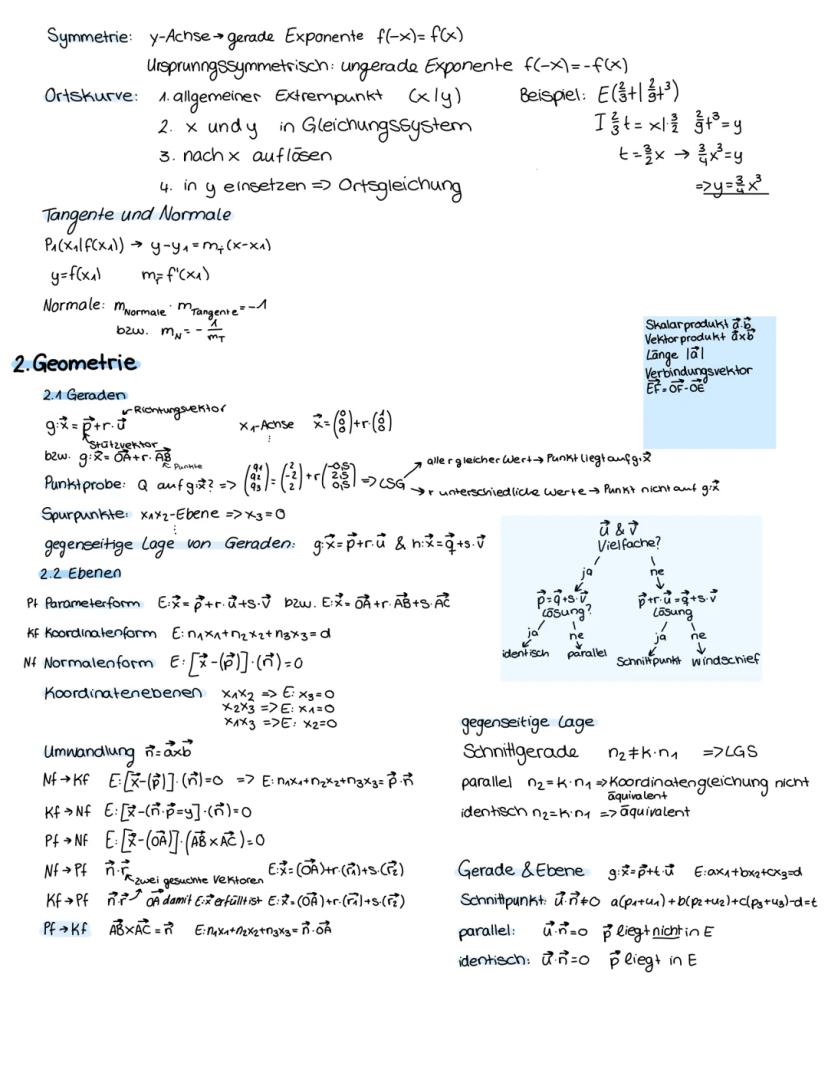 Symmetrie: y-Achse → gerade Exponente f(-x) = f(x)
Ursprunngssymmetrisch: ungerade Exponente f(-x) = -f(x)
Ortskurve: 1. allgemeiner Extrempunkt (x|y)
2. x und y in Gleichungssystem
3. nach x auflösen
4. in y einsetzen => Ortsgleichung
Beispiel: E(2/3 t | 2/9 t³)
I 2/3 t = x |· 3/2 2/9 t³ = y
t = 3/2 x → 3/4 x³ = y
=> y = 3/4 x³
Tangente und Normale
P₁(x₁|f(x₁)) → y-y₁ = m_T (x-x₁)
y = f(x₁) m_T = f'(x₁)
Normale: m_Normale · m_Tangente = -1
bzw. m_N = - 1/m_T
Skalarprodukt a⃗·b⃗
Vektorprodukt a⃗xb⃗
Länge |a⃗|
Verbindungsvektor
EF⃗ = OF⃗ - OE⃗
2. Geometrie
2.1 Geraden
Richtungsvektor
g: x⃗ = p⃗ + r · u⃗
Stützvektor
x₁-Achse x⃗ = (0 0 0) + r · (1 0 0)
bzw. g: x⃗ = OA⃗ + r · AB⃗
Punkte
Punktprobe: Q auf g: x⃗? => (q1 q2 q3) = (2 -2 2) + r (-0,5 2,5 0,5) => LSG
alle r gleicher Wert → Punkt liegt auf g: x⃗
r unterschiedliche Werte → Punkt nicht auf g: x⃗
Spurpunkte: x₁x₂-Ebene => x₃ = 0
gegenseitige Lage von Geraden: g: x⃗ = p⃗ + r · u⃗ & h: x⃗ = q⃗ + s · v⃗
u⃗ & v⃗
Vielfache?
ja ne
p⃗ = q⃗ + s · v⃗ p⃗ + r · u⃗ = q⃗ + s · v⃗
Lösung? Lösung
ja ne ja ne
identisch parallel Schnittpunkt windschief
2.2 Ebenen
Pf Parameterform E: x⃗ = p⃗ + r · u⃗ + s · v⃗ bzw. E: x⃗ = OA⃗ + r · AB⃗ + s · AC⃗
Kf Koordinatenform E: n₁x₁ + n₂x₂ + n₃x₃ = d
Nf Normalenform E: [x⃗ - (p⃗)] · (n⃗) = 0
Koordinatenebenen x₁x₂ => E: x₃ = 0
x₂x₃ => E: x₁ = 0
x₁x₃ => E: x₂ = 0
Umwandlung n⃗ = a⃗xb⃗
Nf → Kf E: [x⃗ - (p⃗)] · (n⃗) = 0 => E: n₁x₁ + n₂x₂ + n₃x₃ = p⃗ · n⃗
Kf → Nf E: [x⃗ - (n⃗ · p⃗ = y] · (n⃗) = 0
Pf → Nf E: [x⃗ - (OA⃗)] · (AB⃗ x AC⃗) = 0
Nf → Pf n⃗ · r⃗ E: x⃗ = (OA⃗) + r · (r⃗₁) + s · (r⃗₂)
zwei gesuchte Vektoren
Kf → Pf n⃗ · r⃗ OA⃗ damit E: x⃗ erfüllt ist E: x⃗ = (OA⃗) + r · (r⃗₁) + s · (r⃗₂)
Pf → Kf AB⃗ x AC⃗ = n⃗ E: n₁x₁ + n₂x₂ + n₃x₃ = n⃗ · OA⃗
gegenseitige Lage
Schnittgerade n₂ ≠ k · n₁ => LGS
parallel n₂ = k · n₁ => Koordinatengleichung nicht
äquivalent
identisch n₂ = k · n₁ => äquivalent
Gerade & Ebene g: x⃗ = p⃗ + t · u⃗ E: ax₁ + bx₂ + cx₃ = d
Schnittpunkt: u⃗ · n⃗ ≠ 0 a(p₁+u₁) + b(p₂+u₂) + c(p₃+u₃) - d = t
parallel: u⃗ · n⃗ = 0 p⃗ liegt nicht in E
identisch: u⃗ · n⃗ = 0 p⃗ liegt in E